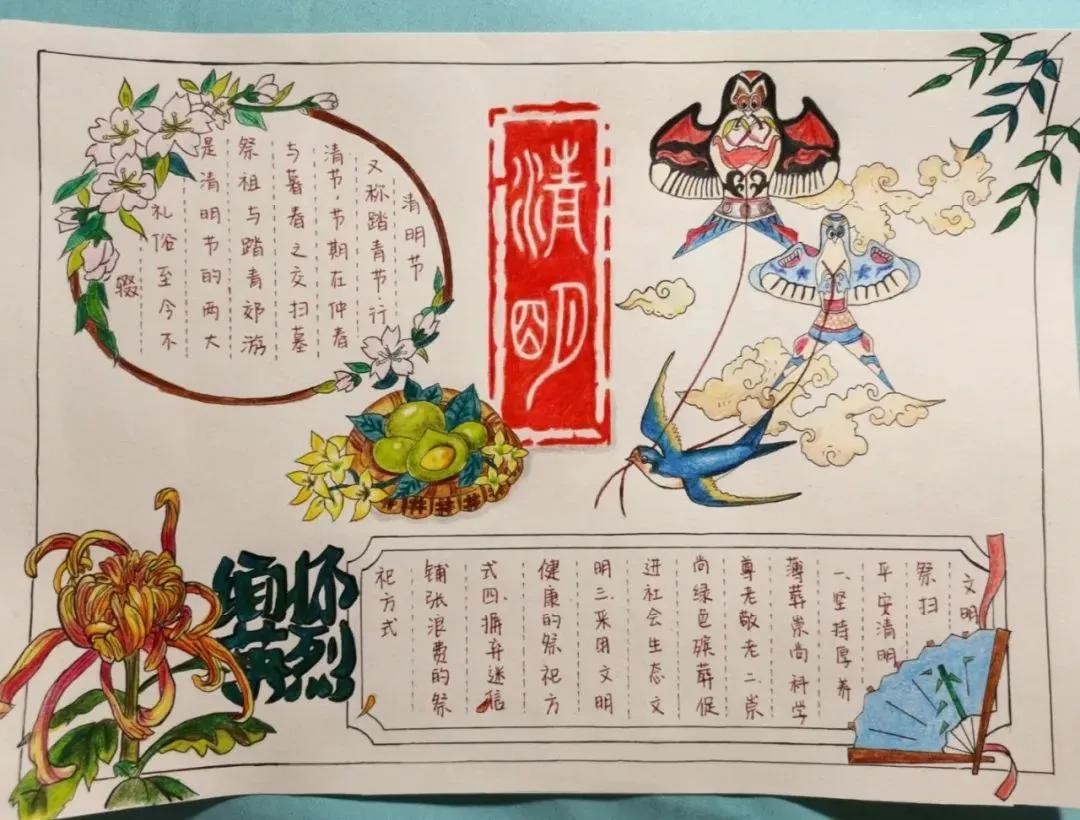 清明
清明节
又称踏青节·行
清节·节期在仲春
与暮春之交扫墓
祭祖与踏青郊游
是清明节的两大
礼俗至今不
辍
缅怀
英烈
文明
祭扫
平安清明
一、坚持厚养
薄葬崇尚科学
尊老敬老二、崇
尚绿色殡葬促
进社会生态文
明三、采用文明
健康的祭祀方
式四、摒弃迷信
铺张浪费的祭
祀方式